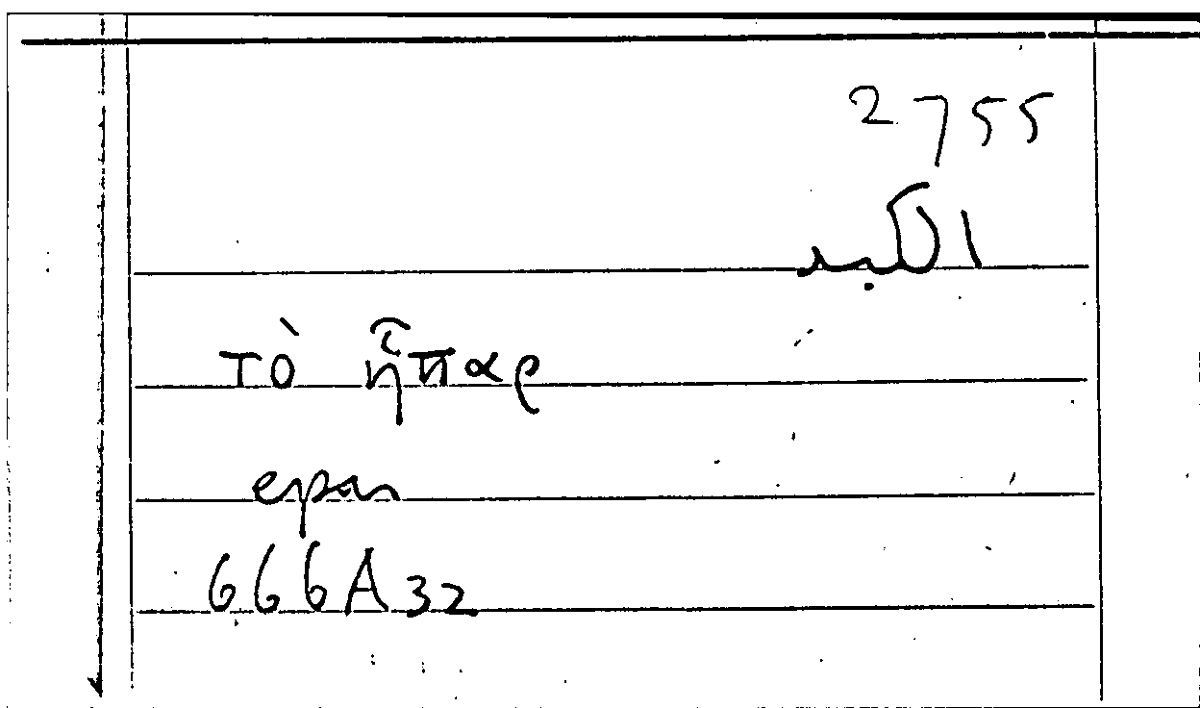 2755
الكبد
τὸ ἧπαρ
epar
666A32